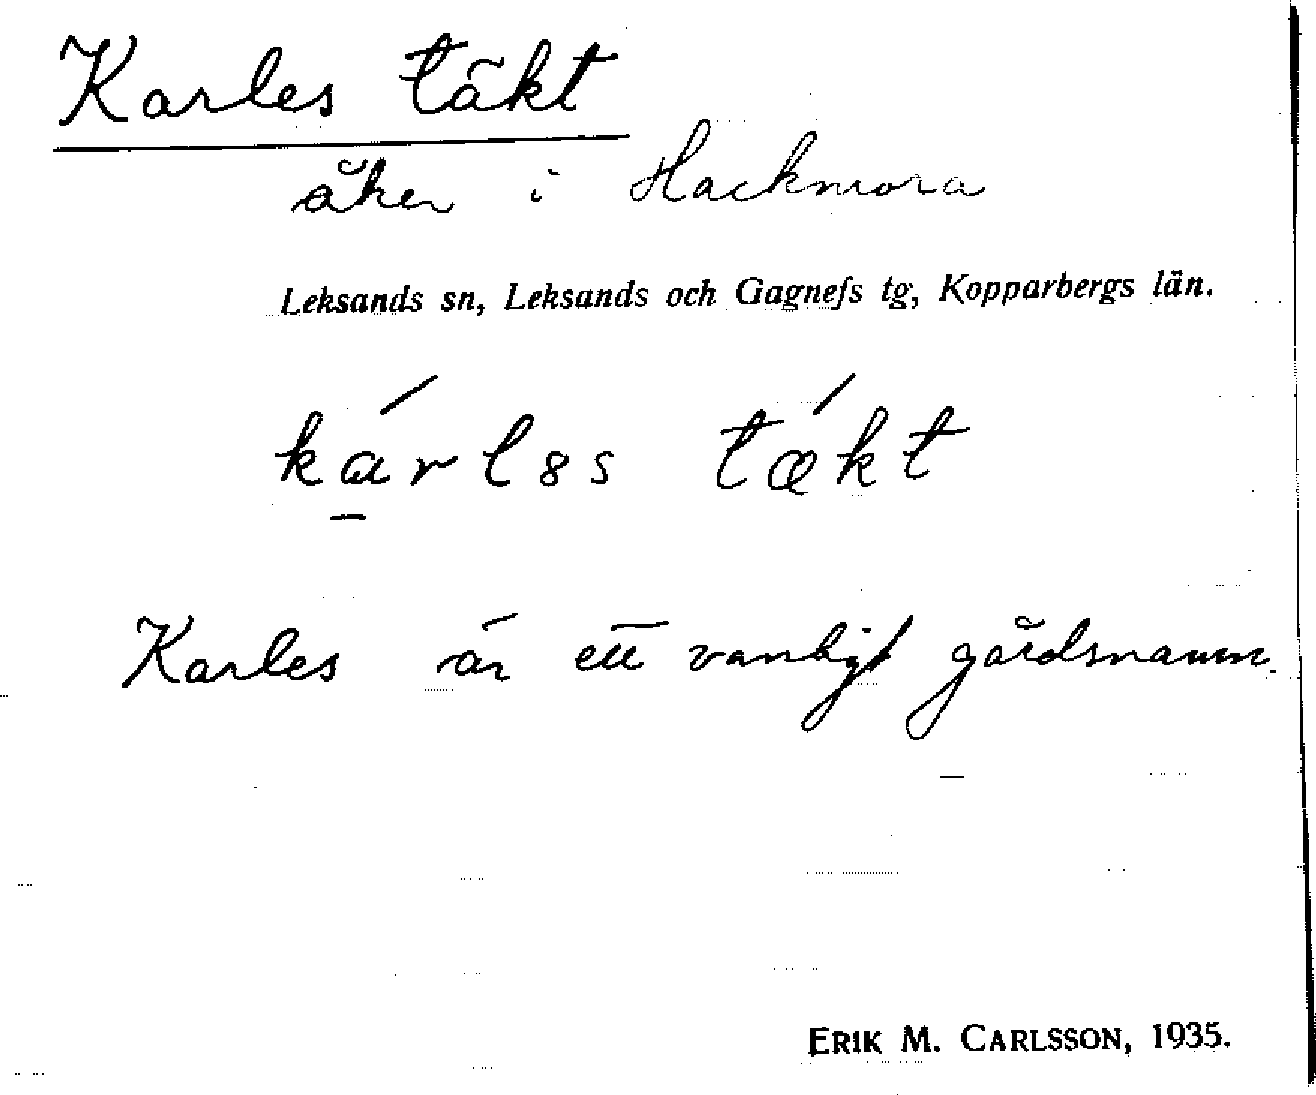 Karles täkt
åker i Hackmora
Leksands sn, Leksands och Gagnefs tg, Kopparbergs län.
kárl8s tǽkt
Karles är ett vanligt gårdsnamn.
ERIK M. CARLSSON, 1935.